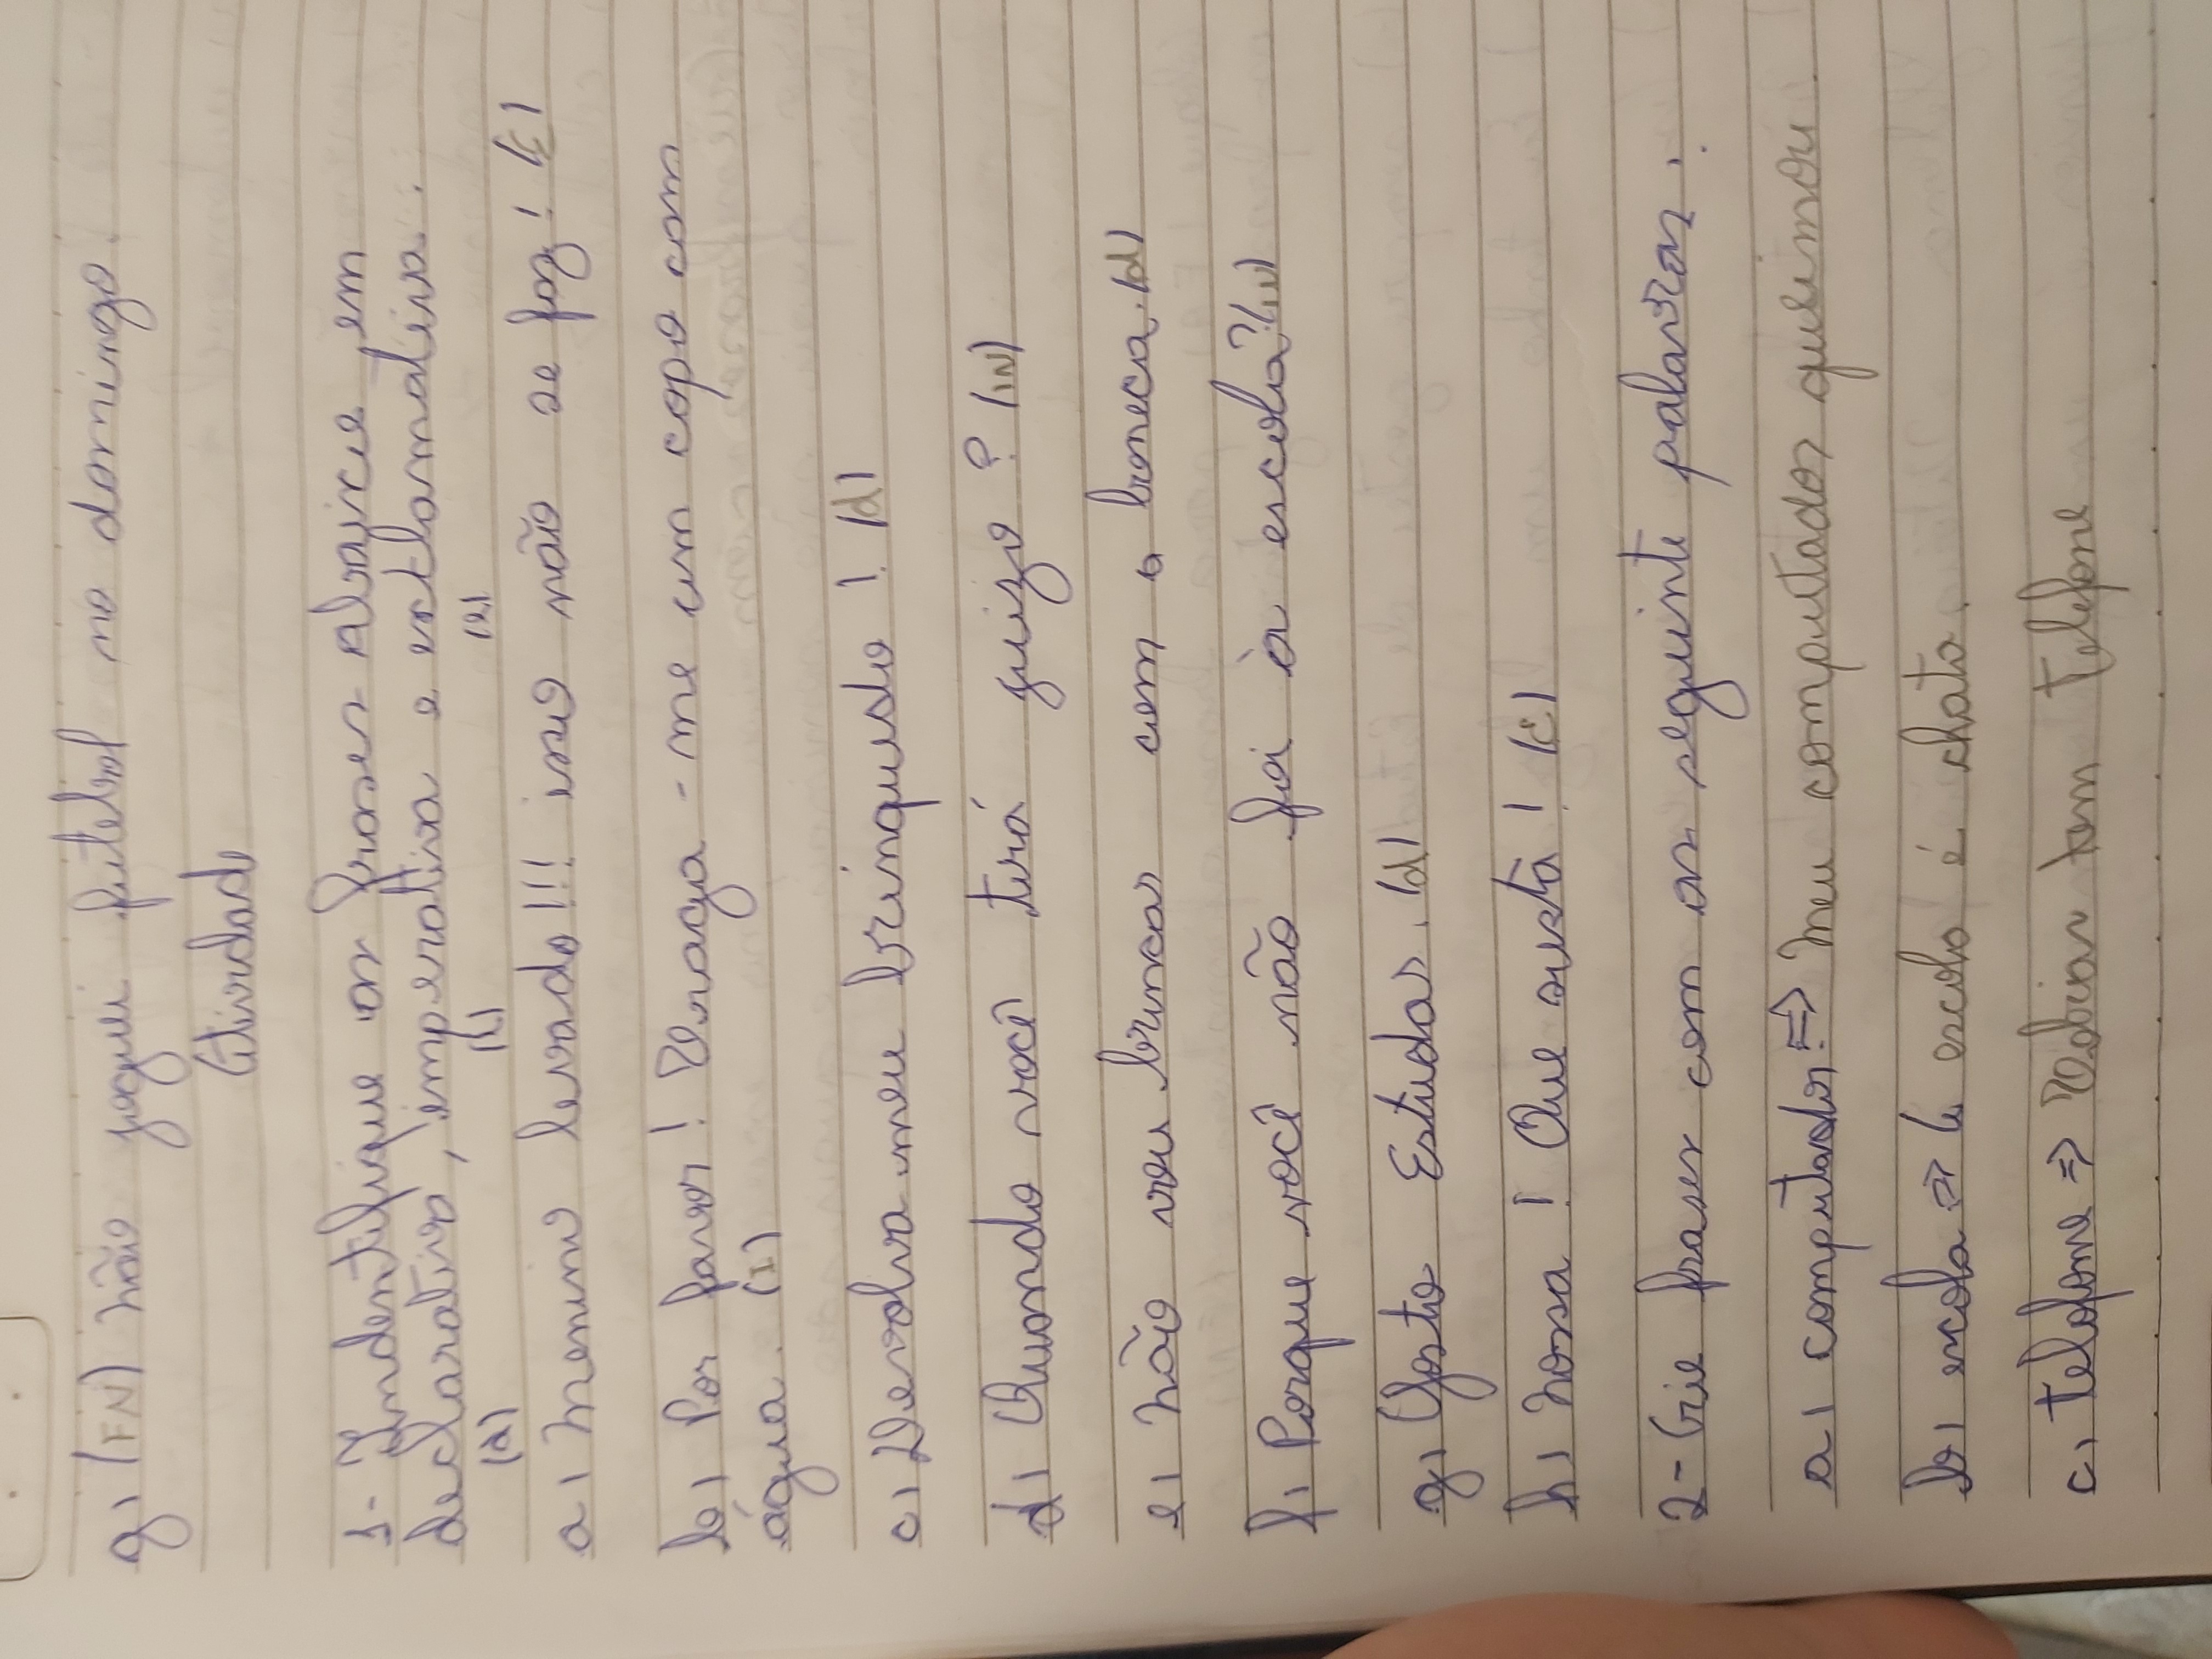 g) (FN) Não joguei futebol no domingo.
Atividade
1- Indentifique as frases abaixo em
declarativa, imperativa e exclamativa.
(d) (i) (e)
a) Menino levado!!! isso não se faz! (E)
b) Por favor! Traga-me um copo com
água. (I)
c) Devolva meu brinquedo! (d)
d) Quando você tirá juizo? (IN)
e) Não vou brincar com a boneca. (d)
f) Porque você não foi à escola? (IN)
g) Gosto Estudar. (d)
h) Nossa! Que susta! (E)
2- Crie frases com as seguinte palavras:
a) computador: => Meu computador queimou.
b) escola => A escola é chata.
c) telofone => Tobias tem telefone